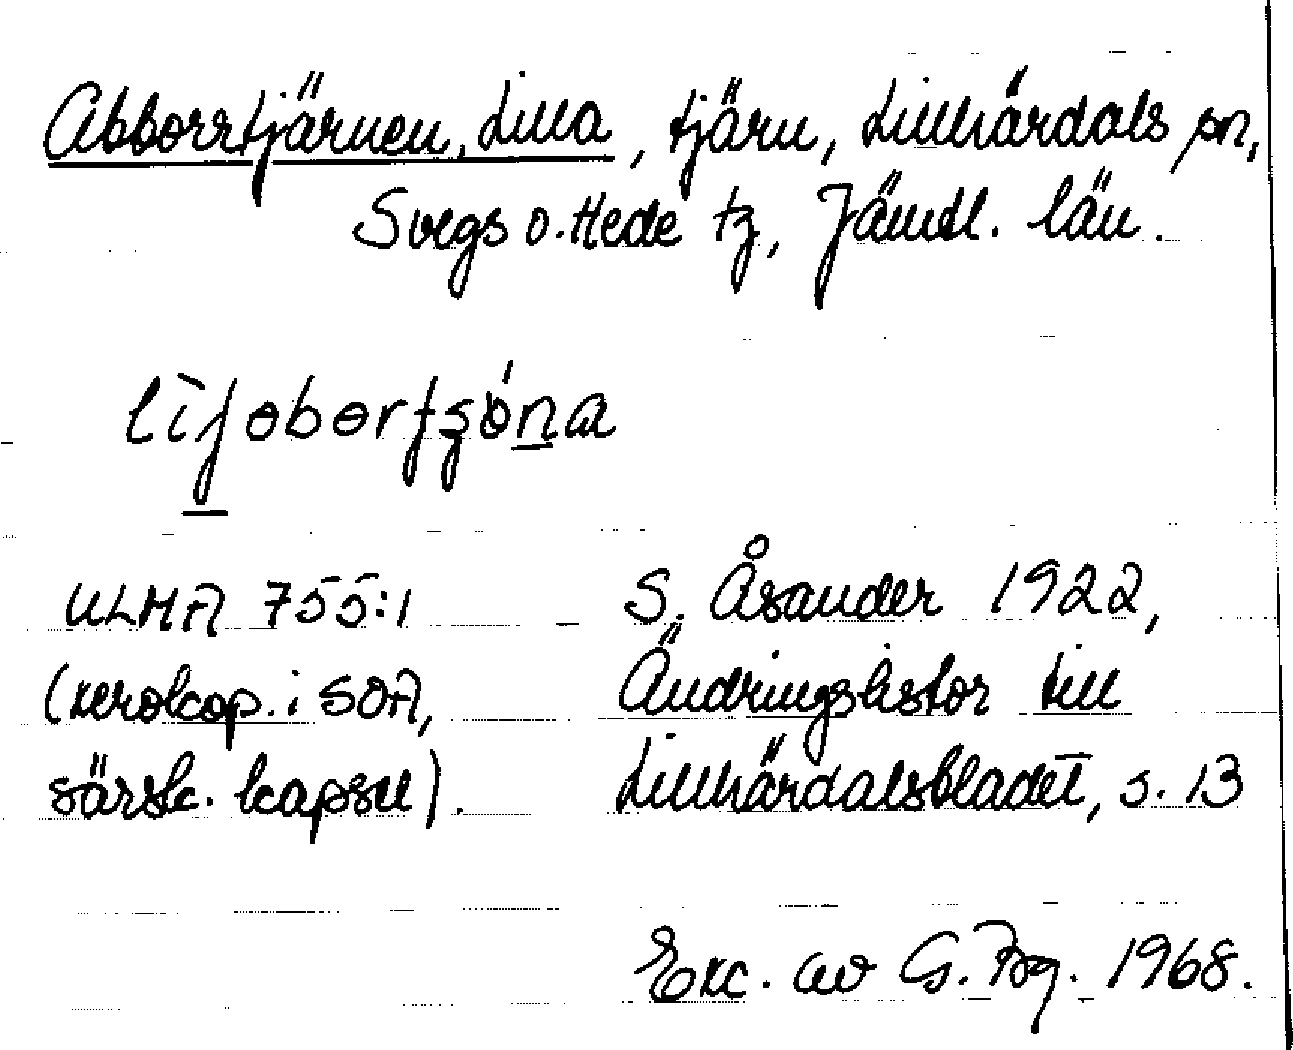 Abborrtjärnen, Lilla, tjärn, Lillhärdals sn,
Svegs o. Hede tg, Jämtl. län.
ULMA 755:1
(xerokop. i SOA,
särsk. kapsel).
S. Åsander 1922,
Ändringslistor till
Lillhärdalsbladet, s. 13
Exc. av G. Bg. 1968.